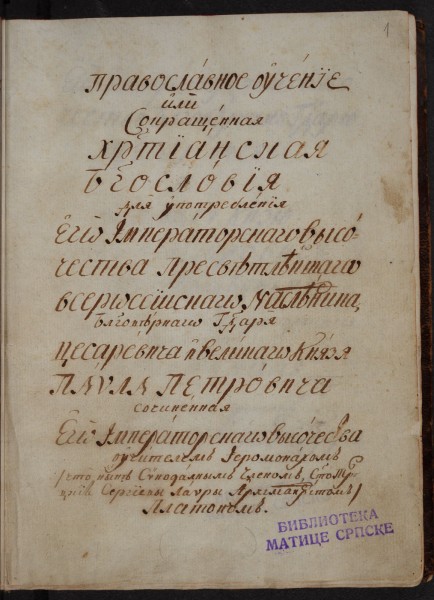 1
православное оученїе
или
Сокращенная
хрⷭтїанская
бгословїя
для употребленїя
Егѡ Императорскагѡ Высо-
чества пресвѣтлѣйшагѡ
всероссійскагѡ Наслѣдника,
Благовѣрнагѡ Гдⷭаря
цесаревича и великагѡ Князя
ПАVЛА ПЕТРОВИЧА
сочиненная
Егѡ Императорскагѡ высочества
оучителемъ Іеромонахомъ
/что нынѣ Сѵнодалнымъ Членомъ, Сто Тро-
цкія Сергіевы Лауры Архімандрїтомъ/
Платономъ.
БИБЛИОТЕКА
МАТИЦЕ СРПСКЕ